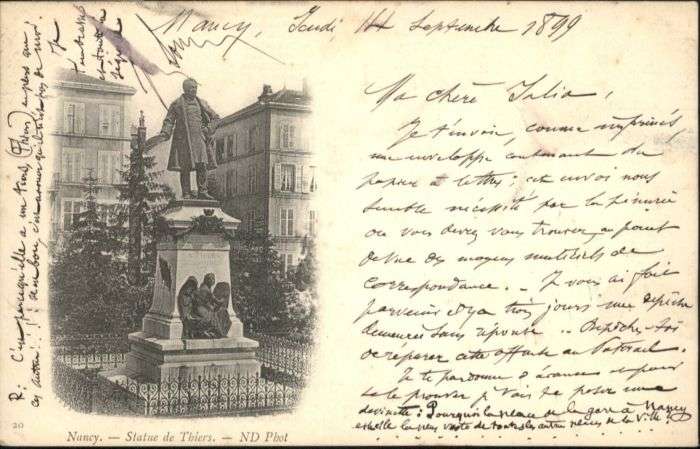 Nancy, Jeudi 14 Septembre 1899
Ma chère Julia,
Je t'envoie, comme imprimés,
une enveloppe contenant du
papier à lettres ; cet envoi nous
semble nécessité par la pénurie
où vous devez vous trouver au point
de vue des moyens matériels de
correspondance. — Je vous ai fait
parvenir il y a trois jours une dépêche
demeurée sans réponse .. Dépêche-toi
de réparer cette
Je te pardonne d'avance et pour
te le prouver je vais te poser une
devinette : Pourquoi la place de la gare à Nancy
est-elle la plus vaste de toutes les autres places de la ville ?
R : C'est parce qu'elle a un tiers (Thiers) en plus que
les autres !
20
Nancy. — Statue de Thiers. — ND Phot